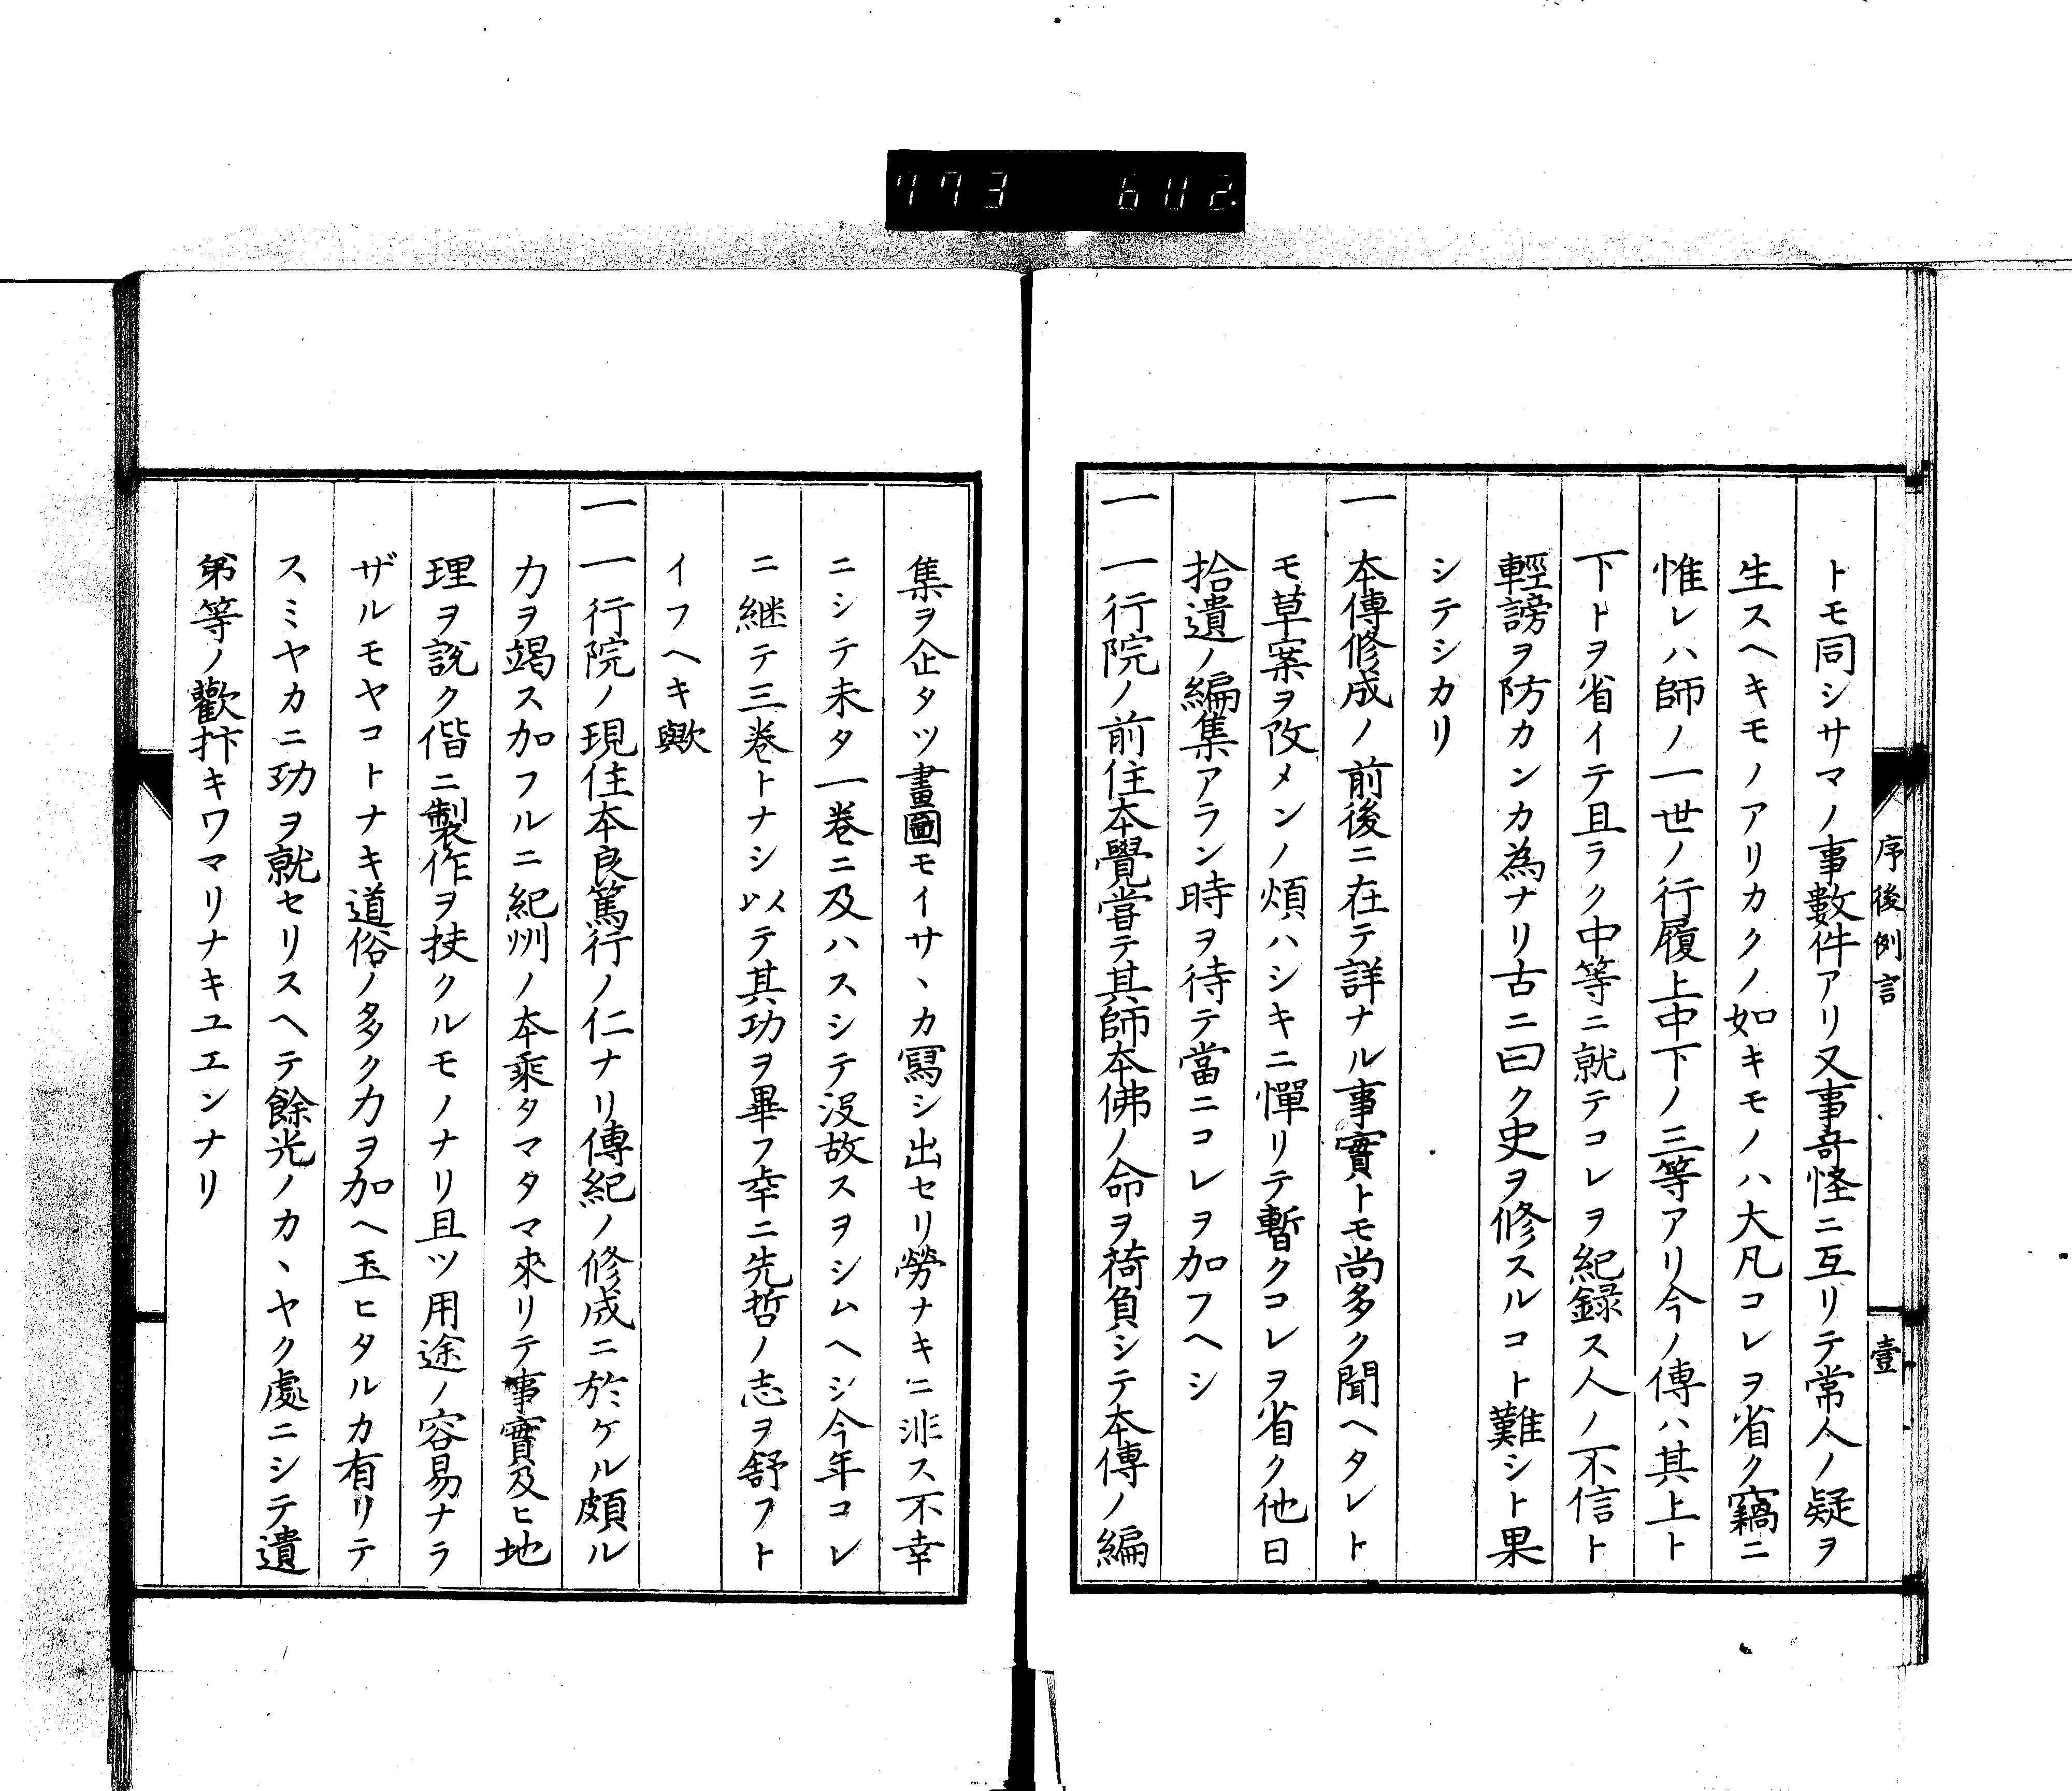 773 602
序後例言
壹
トモ同シサマノ事數件アリ又事竒怪ニ互リテ常人ノ疑ヲ
生スヘキモノアリカクノ如キモノハ大凡コレヲ省ク竊ニ
惟レハ師ノ一世ノ行履上中下ノ三等アリ今ノ傳ハ其上ト
下トヲ省イテ且ラク中等ニ就テコレヲ紀録ス人ノ不信ト
輕謗ヲ防カンカ為ナリ古ニ曰ク史ヲ修スルコト難シト果
シテシカリ
一 本傳修成ノ前後ニ在テ詳ナル事實トモ尚多ク聞ヘタレト
モ草案ヲ改メンノ煩ハシキニ憚リテ暫クコレヲ省ク他日
拾遺ノ編集アラン時ヲ待テ當ニコレヲ加フヘシ
一 一行院ノ前住本覺嘗テ其師本佛ノ命ヲ荷負シテ本傳ノ編
集ヲ企タツ畫圖モイサヽカ寫シ出セリ勞ナキニ非ス不幸
ニシテ未タ一巻ニ及ハスシテ没故スヲシムヘシ今年コレ
ニ継テ三巻トナシ以テ其功ヲ畢フ幸ニ先哲ノ志ヲ舒フト
イフヘキ歟
一 一行院ノ現住本良篤行ノ仁ナリ傳紀ノ修成ニ於ケル頗ル
力ヲ竭ス加フルニ紀州ノ本乘タマタマ來リテ事實及ヒ地
理ヲ説ク偕ニ製作ヲ扶クルモノナリ且ツ用途ノ容易ナラ
ザルモヤコトナキ道俗ノ多ク力ヲ加ヘ玉ヒタルカ有リテ
スミヤカニ功ヲ就セリスヘテ餘光ノカヽヤク處ニシテ遺
弟等ノ歡抃キワマリナキユエンナリ